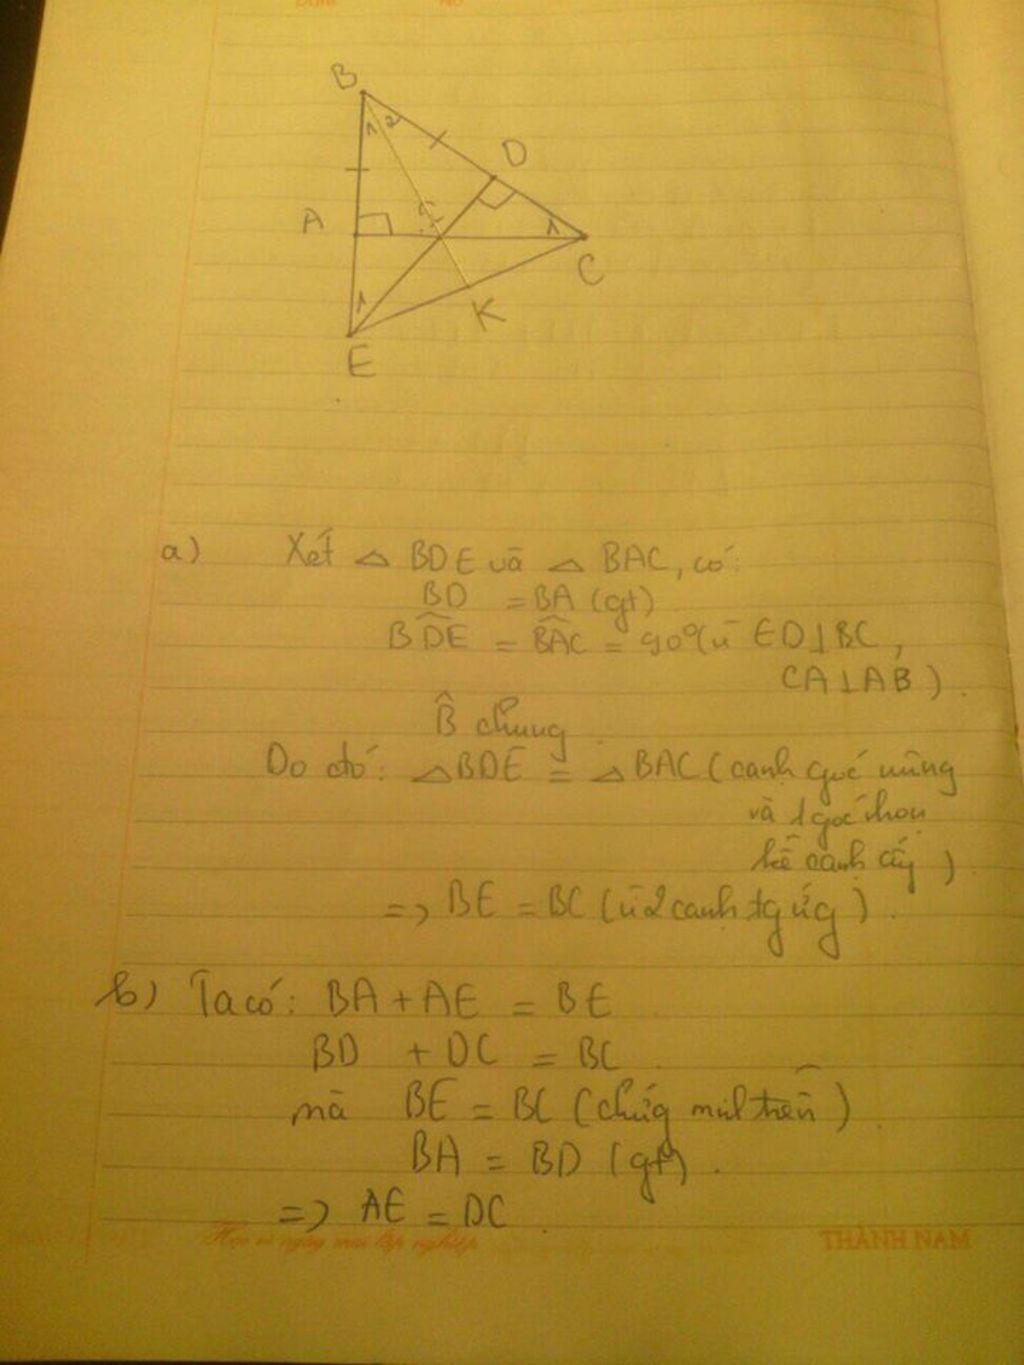 B
1 2
D
A
1
C
1
K
E
a) Xét △ BDE và △ BAC, có:
BD = BA (gt)
BDE = BAC = 90° (vì ED⊥BC,
CA⊥AB).
B̂ chung
Do đó: △BDE = △BAC (cạnh góc vuông
và 1 góc nhọn
kề cạnh ấy)
=> BE = BC (vì 2 cạnh tg ứg).
b) Ta có: BA + AE = BE
BD + DC = BC
mà BE = BC (chứg minh trên)
BA = BD (gt).
=> AE = DC.
THÀNH NAM